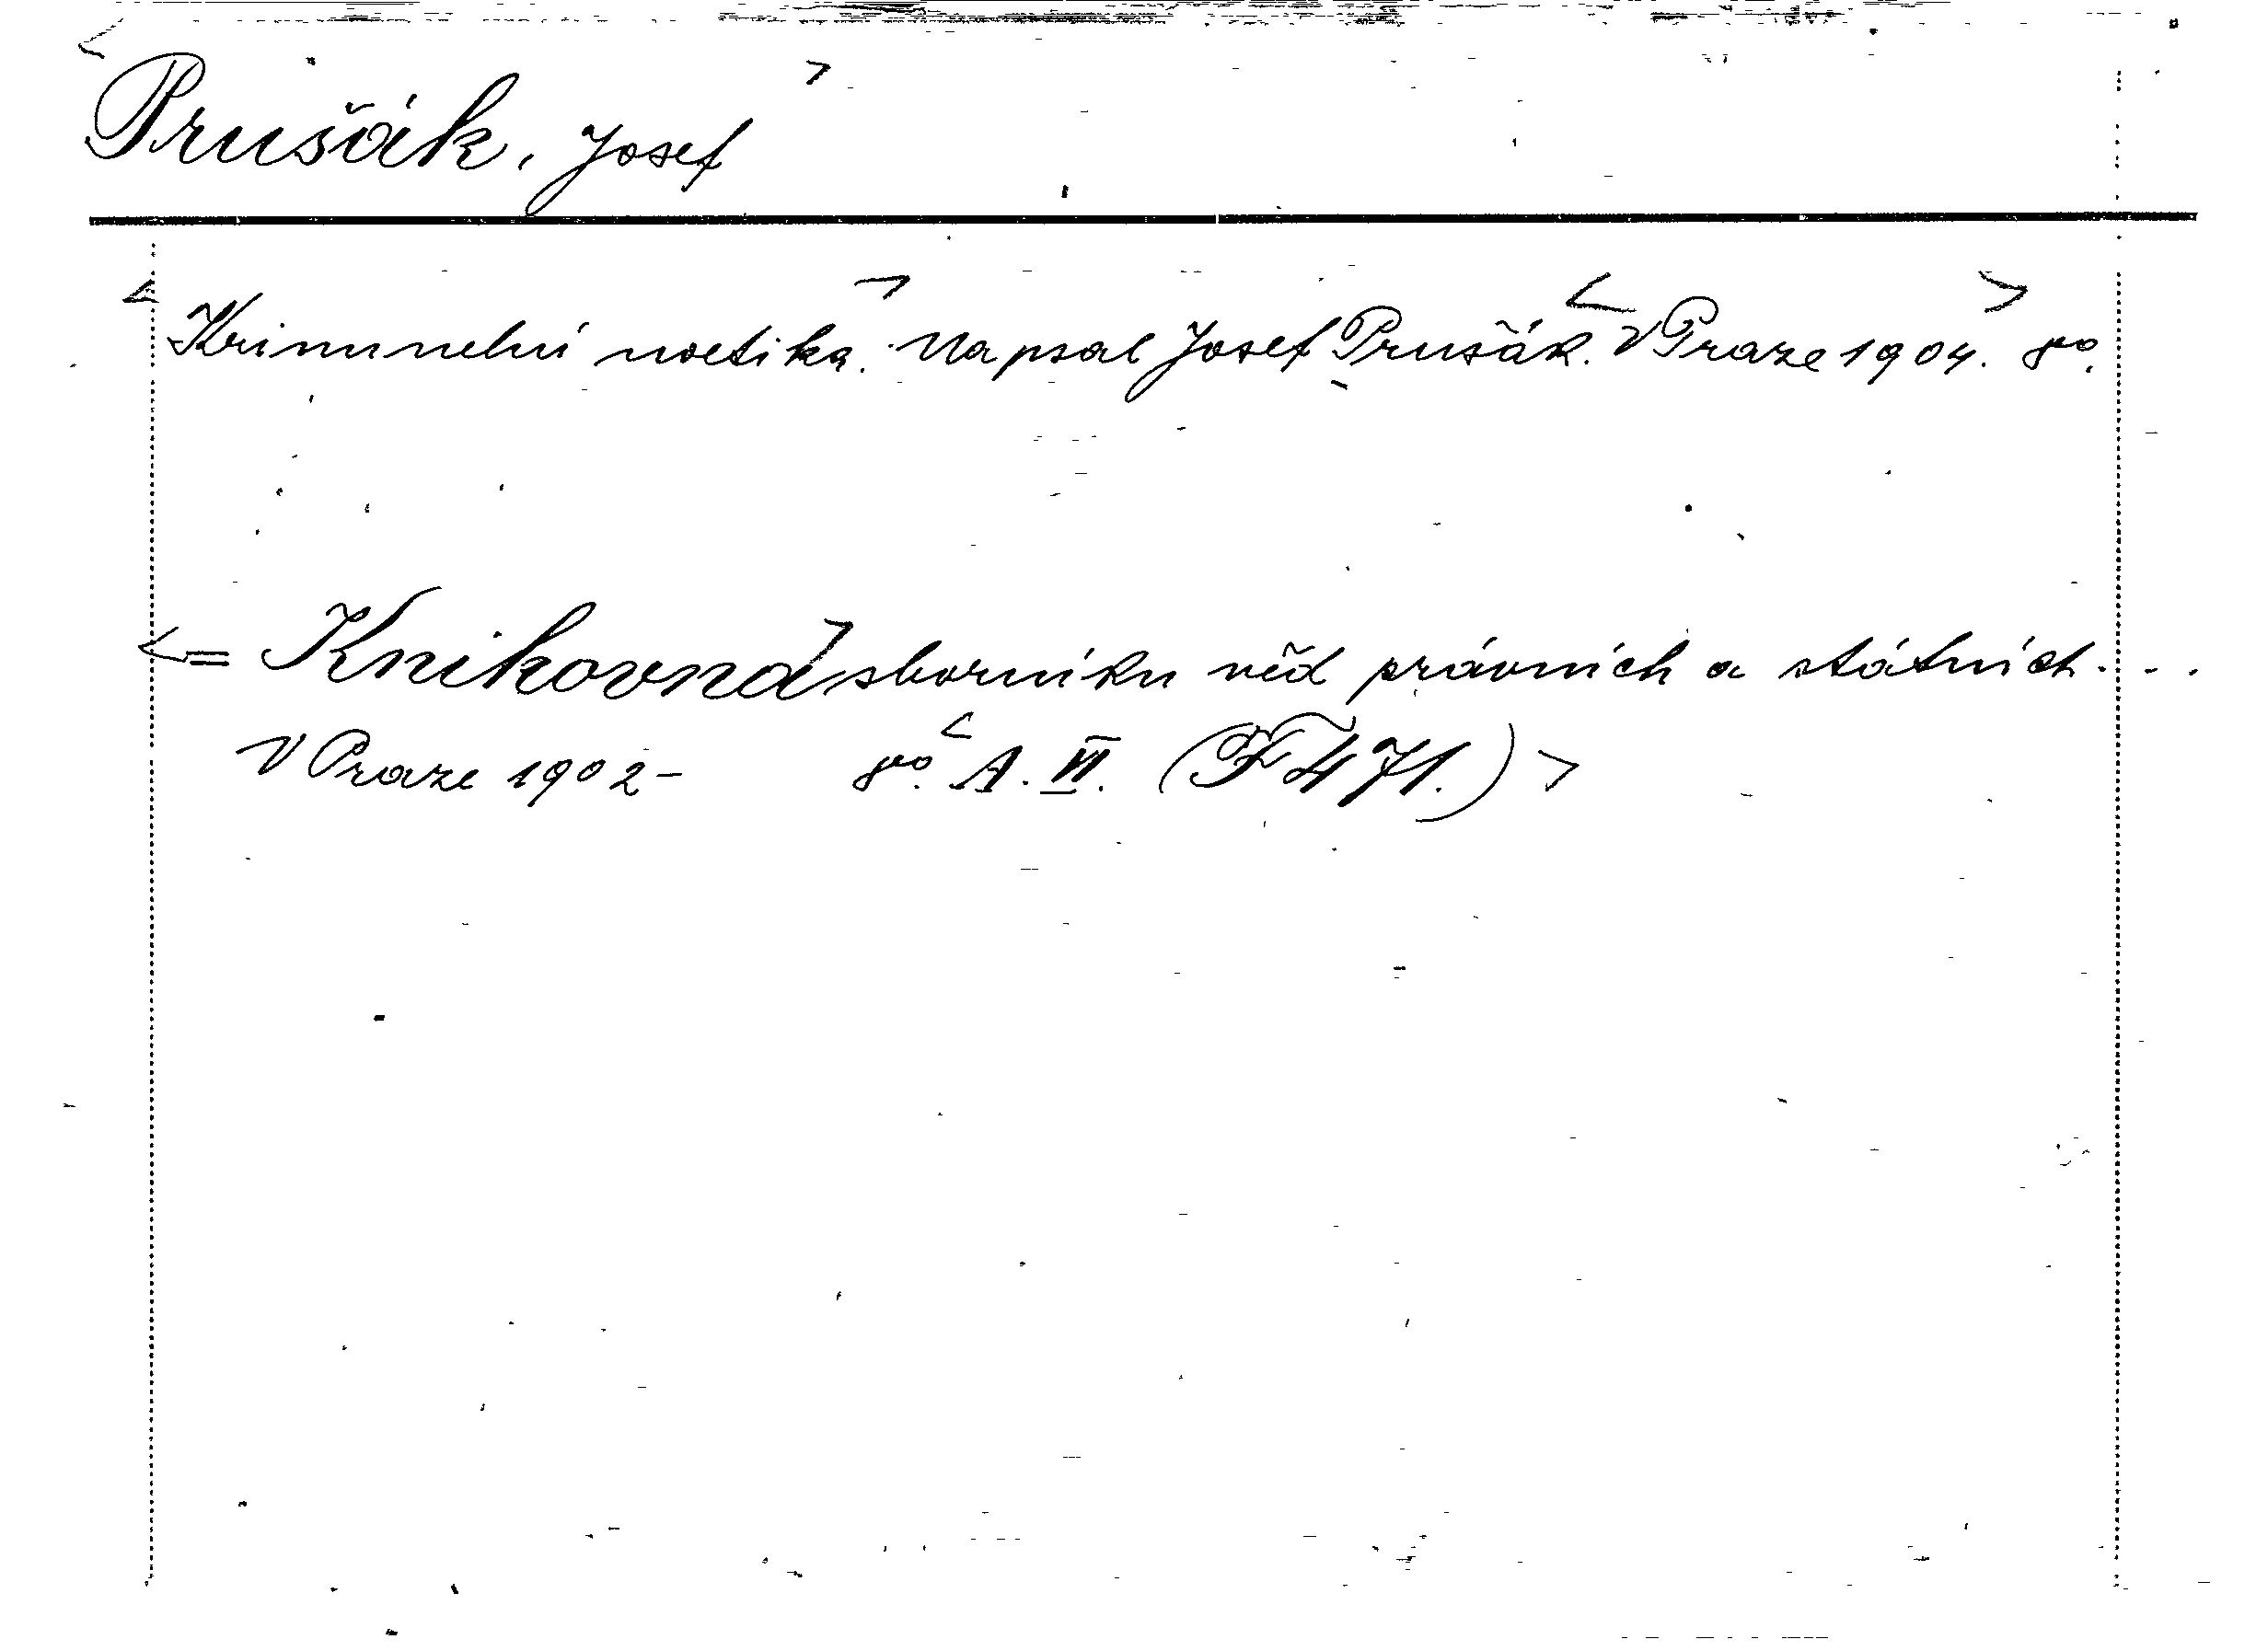 < Prušák, Josef >
< Kriminelní noetika. > Napsal Josef Prušák. < V Praze 1904. > 8º.
< = Knihovna > sborníku věd právních a státních....
V Praze 1902- 8º. < A. VI. (F 471.) >